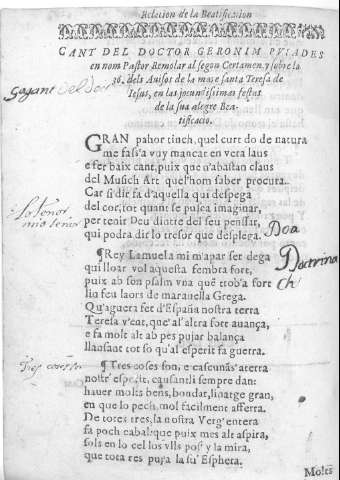 Relacion de la Beatificacion
CANT DEL DOCTOR GERONIM PVIADES
en nom Pastor Remolar al segon Certamen, y sobre lo
36. dels Auisos de la mare santa Teresa de
Iesus, en las jocundissimas festas
de la sua alegre Bea-
tificacio.
GRAN pahor tinch, quel curt do de natura
me fass'a vuy mancar en vera laus
e fer baix cant, puix que n'abastan claus
del Musich Art quel'hom saber procura.
Car si dir fá d'aquella qui despega
del cor, tot quant se pusca imaginar,
per tenir Deu dintre del seu penssar,
qui podra dir lo tresor que desplega.
¶ Rey Lamuela mi m'apar set dega
qui lloar vol aquesta fembra fort,
puix ab son psalm vna que trob'a fort
liu feu laors de marauella Grega.
Qu'aguera fet d'España nostra terra
Teresa v'eat, que'al'altra fort auança,
e fa molt alt ab pes pujar balança
llansant tot so qu'al esperit fa guerra.
¶ Tres coses son, e cascunas'aterra
nostr'esperit, causantli sempre dan:
hauer molts bens, bondat, linatge gran,
en que lo pech, mol facilment afferra.
De totes tres, la nostra Verg'entera
fá poch cabal: que puix mes alt aspira,
sols en lo cel los vlls post y la mira,
que tota res puja la su'Esphera.
Molts
Doa
Doctrina
Ch